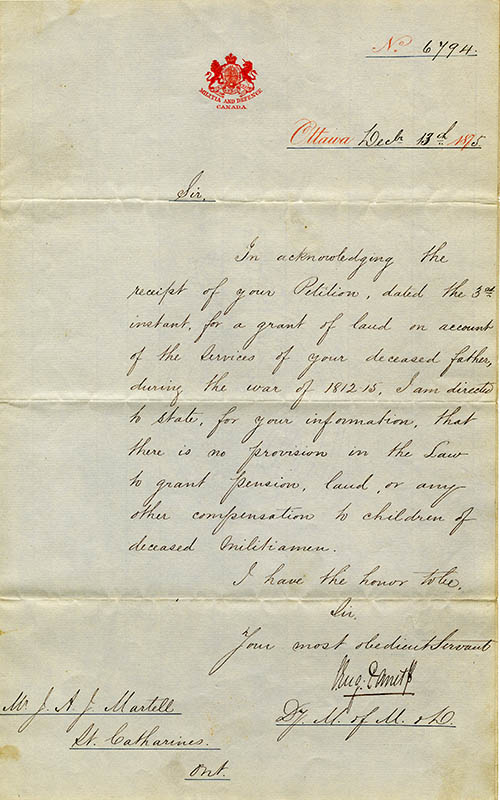 No. 6794.
MILITIA AND DEFENCE
CANADA
Ottawa Decbr 13th 1875
Sir,
In acknowledging the
receipt of your Petition, dated the 3rd
instant, for a grant of land on account
of the Services of your deceased father,
during the war of 1812-15, I am directed
to state, for your information, that
there is no provision in the Law
to grant pension, land, or any
other compensation to children of
deceased Militiamen.
I have the honor to be,
Sir,
Your most obedient Servant
Dy M. of M. & D.
Mr J. A. J. Martell
St. Catharines.
Ont.